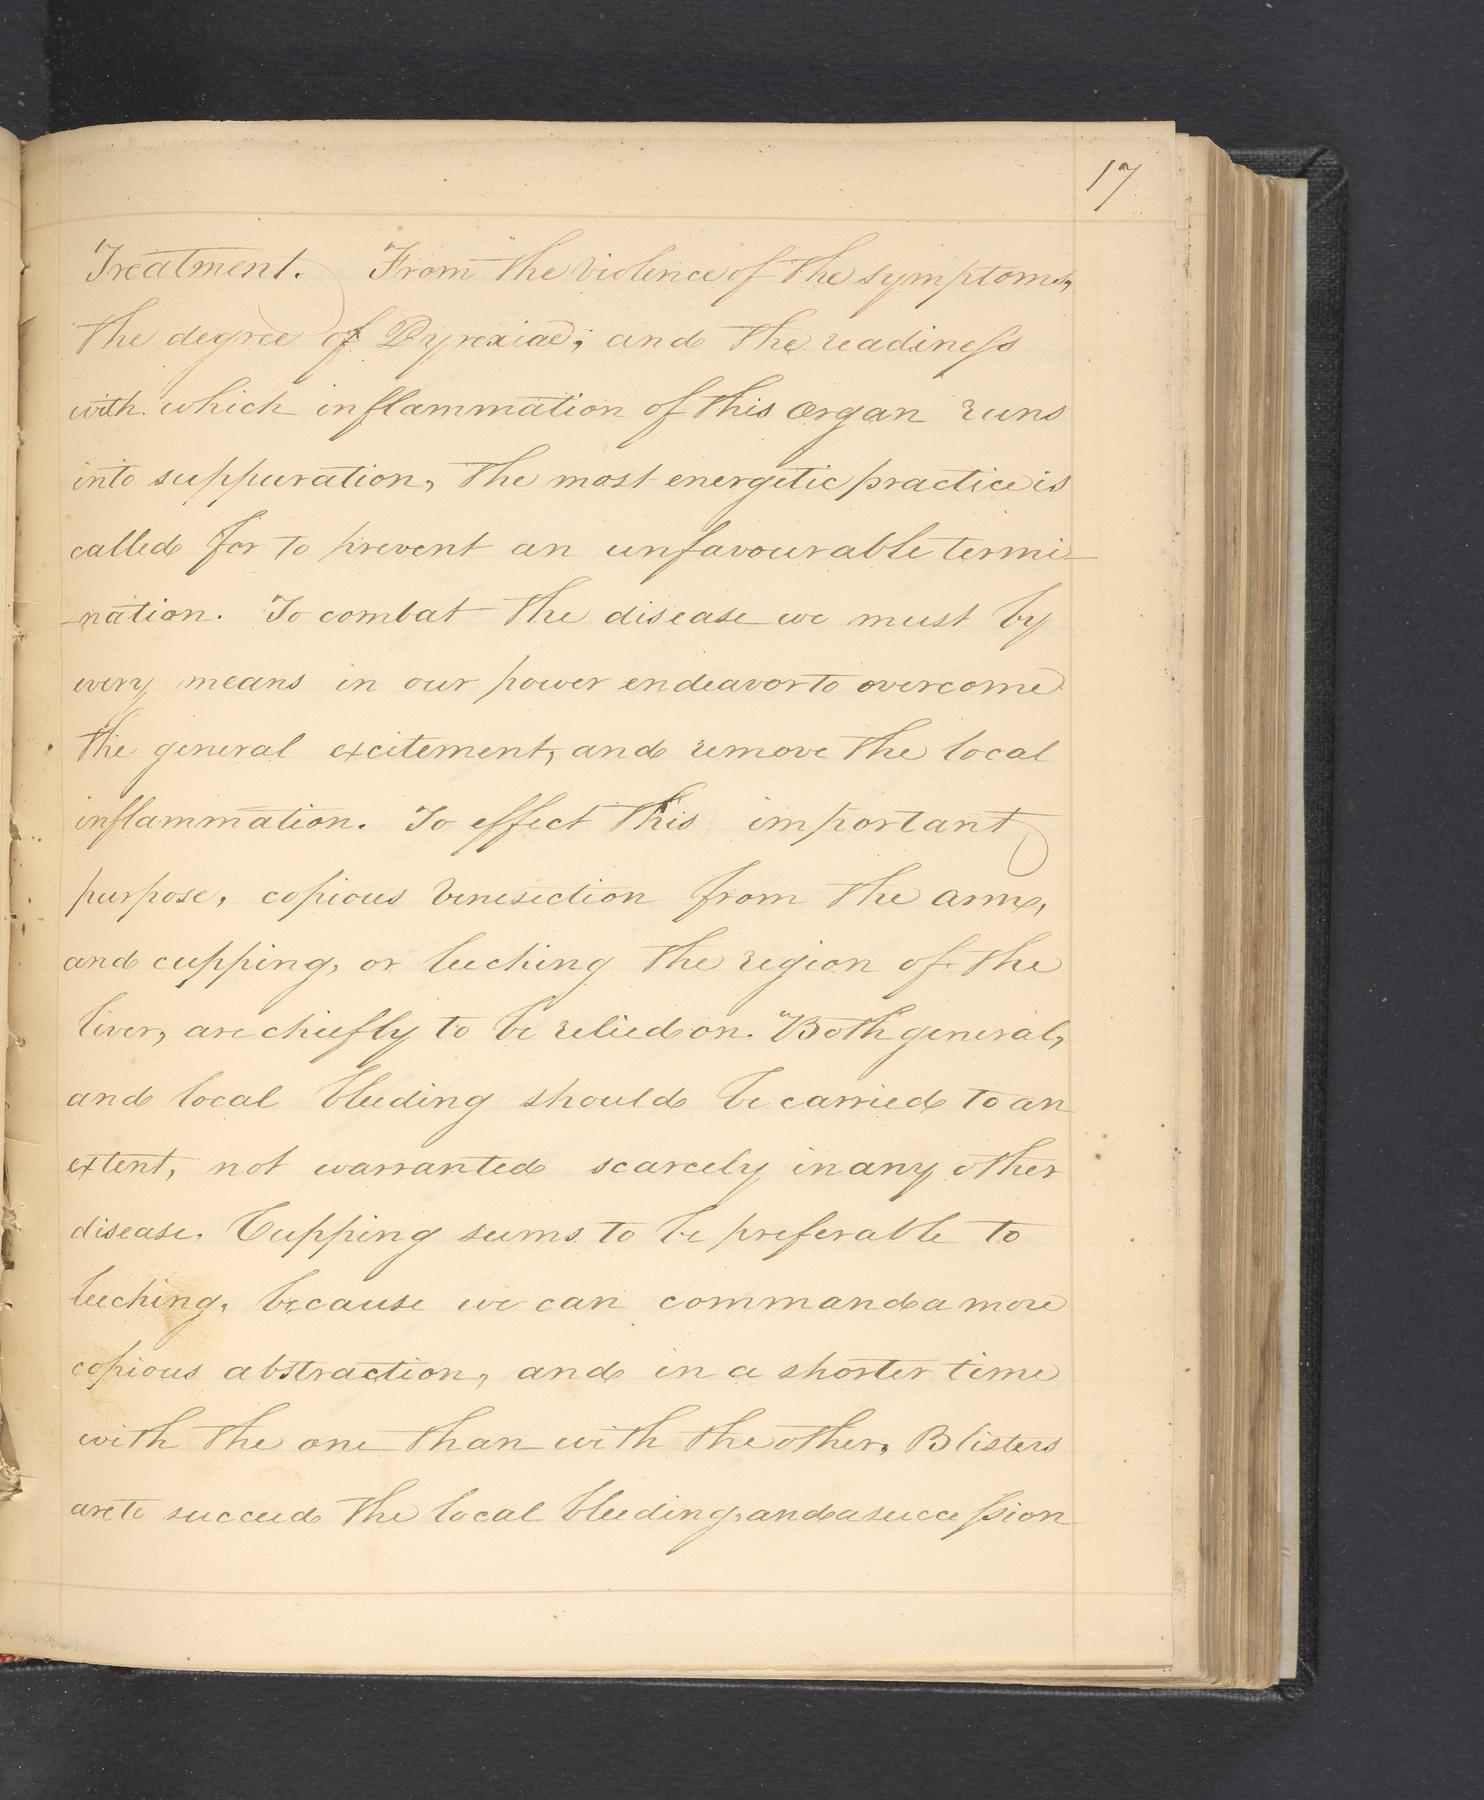 17
Treatment. From the violence of the symptoms,
the degree of Pyrexiae; and the readiness
with which inflammation of this organ runs
into suppuration, the most energetic practice is
called for to prevent an unfavourable termi-
-nation. To combat the disease we must by
every means in our power endeavor to overcome
the general excitement, and remove the local
inflammation. To effect this important
purpose, copious venesection from the arm,
and cupping, or leeching the region of the
liver, are chiefly to be relied on. Both general,
and local bleeding should be carried to an
extent, not warranted scarcely in any other
disease. Cupping seems to be preferable to
leeching, because we can command a more
copious abstraction, and in a shorter time
with the one than with the other. Blisters
are to succeed the local bleeding, and a succession